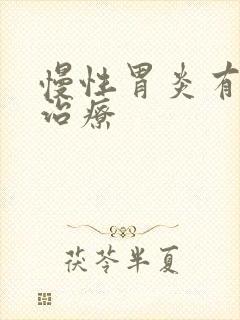 慢性胃炎有
治疗
茯苓半夏